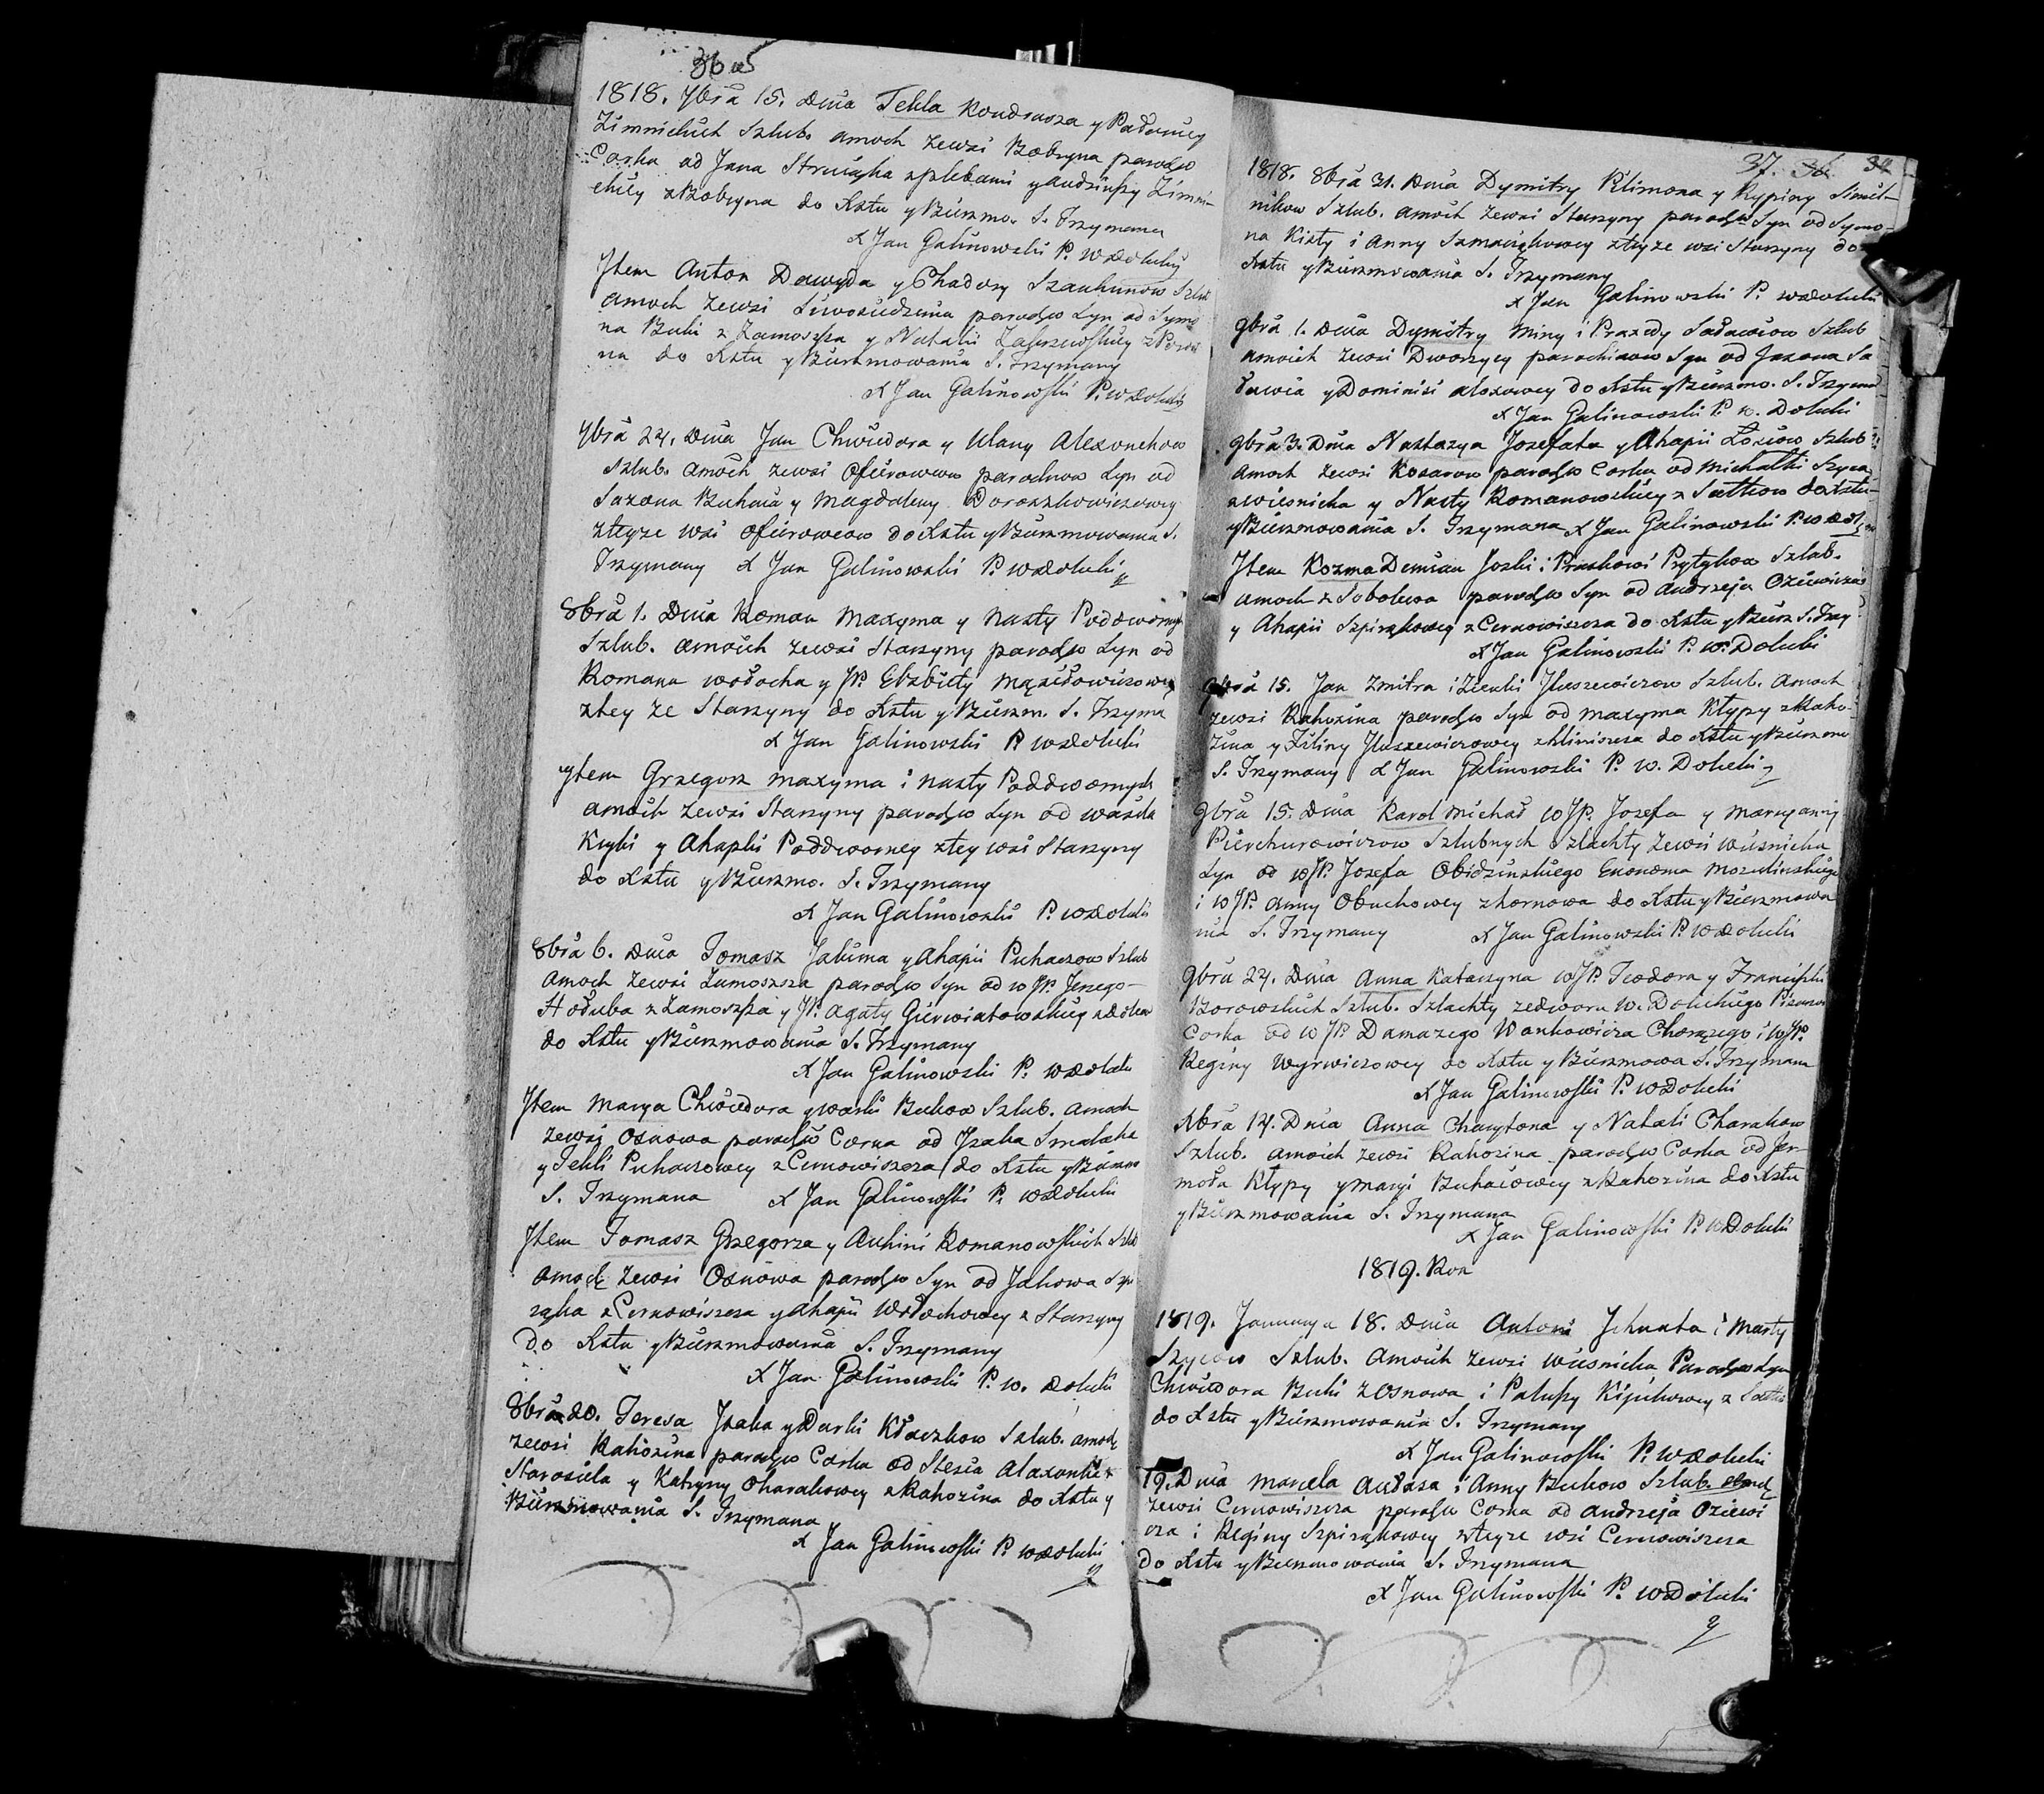 36
1818. 7bra 15. Dnia Tekla Kondrasza y Paduncy
Zimnickich Szlub. amoch zewsi Bobryna parochw
Corka od Jana Struczka zplebami yaudziuszy Zimni-
ckiey zBobryna do Xstu yBierzmo. S. Trzymana
X Jan Galinowski P. wDolicki
Jtem Anton Dawyda y Chadory Szauhunow Szlub
amoch zewsi parochw Syn od Symo
na Buki z Zamoszsza y Natalii
na do Xstu yBierzmowania S. Trzymany
X Jan Galinowski P. wDolicki
7bra 24. Dnia Jan Chwiedora y Ulany Alexonchow
Szlub. amoich zewsi Ofierowcow parochow Syn od
Sazona Buhaia y Magdaleny Doroszkowiczowey
zteyze wsi Ofierowcow do Xstu yBierzmowania S.
Trzymany X Jan Galinowski P. wDolicki
8bra 1. Dnia Roman Maxyma y Nasty Poddwornych
Szlub. amoich zewsi Starzyny parochw Syn od
Romana Wołocha y JP. Elzbiety
ztey ze Starzyny do Xstu yBierzm. S. Trzyma
X Jan Galinowski P. wDolicki
ytem Grzegorz Maxyma i Nasty Poddwornych
amoich zewsi Starzyny parochw Syn od Wasila
y Ahapki Poddworney ztey wsi Starzyny
do Xstu yBierzmo. S. Trzymany
X Jan Galinowski P. wDolicki
8bra 6. Dnia Tomasz Jakima yAhapii Puhaczow Szlub
amoch zewsi Zamoszsza parochw Syn od wJP. Jerzego
Hołuba z Zamoszsza y JP. Agaty
do Xstu yBierzmowania S. Trzymany
X Jan Galinowski P. wDolicki
Jtem Marya Chwiedora yWaski Bukow Szlub. amoch
zewsi Osnowa parochw Corka od Jzaka
y Tekli Puhaczowey zCernowiszcza do Xstu yBierzmo
S. Trzymana X Jan Galinowski P. wDolicki
Jtem Tomasz Grzegorza y Auhini Romanowskich Szlub
amoch zewsi Osnowa parochw Syn od Jakowa Szpi
rąka zCernowiszcza yAhapii Wołochowey z Starzyny
Do Xstu yBierzmowania S. Trzymany
X Jan Galinowski P. w. Dolicki
8bra 20. Teresa Jzaka yDarki Kłaczkow Szlub. amoch
zewsi Rahozina parochw Corka od Stesia Alaxonka z
Starosiela y Katryny Charakowey zRahozina do Xstu y
Bierzmowania S. Trzymana
X Jan Galinowski P. wDolicki
37. 36.
1818. 8bra 31. Dnia Dymitry Klimona y Krypiny Simit-
nikow Szlub. amoich zewsi Starzyny parochw Syn od Symo-
na Kisty i Anny Szmaciąkowey zteyze wsi Starzyny do
Xstu yBierzmowania S. Trzymany
X Jan Galinowski P. wDolicki
9bra 1. Dnia Dymitry Miny i Praxedy Saławiow Szlub
amoich zewsi Dworzycy parochianow Syn od Jazona Sa
ławia yDominisi do Xstu yBierzmo. S. Trzyma
X Jan Galinowski P. w. Dolicki
9bra 3. Dnia Nastazya Jozefata yAhapii Łosiow Szlub
amoch zewsi Kosarow parochw Corka od Michałki Szyca
zwiesnicka y Nasty Romanowskiey z Sutkow do Xstu
yBierzmowania S. Trzymana X Jan Galinowski P. wDol
Jtem Kozma Demian Joski i Praskowi Prytykow Szlub.
amoch z Sobolewa parochw Syn od Andrzeja Oziewicza
y Ahapii Szpirąkowey zCernowiszcza do Xstu yBierz S. Trzy
X Jan Galinowski P. w. Dolicki
9bra 15. Jan Zmitra i Zienki Jluszewiczow Szlub. amoch
zewsi Rahozina parochw Syn od Maxyma Kłypy zRaho-
zina y Jluszewiczowey do Xstu yBierzmo
S. Trzymany X Jan Galinowski P. w. Dolicki
9bra 15. Dnia Karol Michał wJP. Jozefa y Maryanny
Pierchurowiczow Szlubnych Szlachty zewsi Wiesnicka
Syn od wJP. Jozefa Obidzinskiego Ekonoma
i wJP. Anny Obuchowey zhornowa do Xstu yBierzmowa
nia S. Trzymany X Jan Galinowski P. wDolicki
9bra 24. Dnia Anna Katarzyna wJP. Teodora y Franciszki
Borowskich Szlub. Szlachty zedworu W. Dolickiego Pisarza
Corka od wJP. Damazego Wankowicza Chorązego i wJP.
Reginy Wyrwiczowey do Xstu yBierzmowa S. Trzymana
X Jan Galinowski P. wDolicki
Xbra 14. Dnia Anna Charytona y Natali Charakow
Szlub. amoich zewsi Rahozina parochw Corka od Jar-
moła Kłypy yMaryi Buhaiowey zRahozina do Xstu
yBierzmowania S. Trzymana
X Jan Galinowski P. wDolicki
1819. Rok
1819. Januarya 18. Dnia Antoni Jchnata i Marty
Szycow Szlub. amoich zewsi Wiesnicka Parochw Syn
Chwiedora Buki zOsnowa i Paluszy
do Xstu yBierzmowania S. Trzymany
X Jan Galinowski P. wDolicki
19. Dnia Marcela Aułasa i Anny Bukow Szlub. amoch
zewsi Cernowiszcza parochw Corka od Andrzeja Oziewi
cza i Reginy Szpirąkowey zteyze wsi Cernowiszcza
do Xstu yBierzmowania S. Trzymana
X Jan Galinowski P. wDolicki